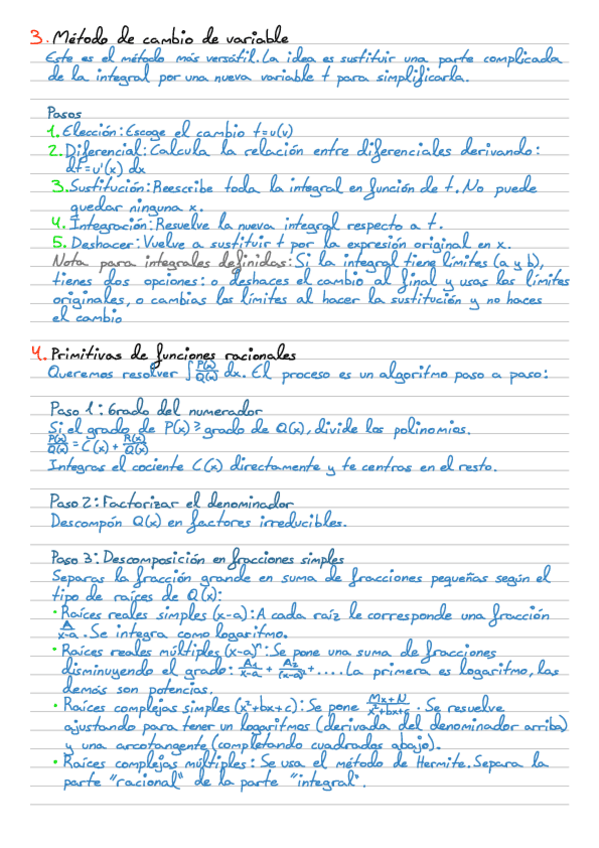 3. Método de cambio de variable
Este es el método más versátil. La idea es sustituir una parte complicada
de la integral por una nueva variable t para simplificarla.
Pasos
1. Elección: Escoge el cambio t=u(v)
2. Diferencial: Calcula la relación entre diferenciales derivando:
dt=u'(x) dx
3. Sustitución: Reescribe toda la integral en función de t. No puede
quedar ninguna x.
4. Integración: Resuelve la nueva integral respecto a t.
5. Deshacer: Vuelve a sustituir t por la expresión original en x.
Nota para integrales definidas: Si la integral tiene límites (a y b),
tienes dos opciones: o deshaces el cambio al final y usas los límites
originales, o cambias los límites al hacer la sustitución y no haces
el cambio
4. Primitivas de funciones racionales
Queremos resolver ∫ P(x)/Q(x) dx. El proceso es un algoritmo paso a paso:
Paso 1: Grado del numerador
Si el grado de P(x) ≥ grado de Q(x), divide los polinomios.
P(x)/Q(x) = C(x) + R(x)/Q(x)
Integras el cociente C(x) directamente y te centras en el resto.
Paso 2: Factorizar el denominador
Descompón Q(x) en factores irreducibles.
Paso 3: Descomposición en fracciones simples
Separas la fracción grande en suma de fracciones pequeñas según el
tipo de raíces de Q(x):
• Raíces reales simples (x-a): A cada raíz le corresponde una fracción
A/x-a. Se integra como logaritmo.
• Raíces reales múltiples (x-a)ⁿ: Se pone una suma de fracciones
disminuyendo el grado: A₁/x-a + A₂/(x-a)² + .... La primera es logaritmo, las
demás son potencias.
• Raíces complejas simples (x²+bx+c): Se pone Mx+N/x²+bx+c. Se resuelve
ajustando para tener un logaritmos (derivada del denominador arriba)
y una arcotangente (completando cuadrados abajo).
• Raíces complejas múltiples: Se usa el método de Hermite. Separa la
parte "racional" de la parte "integral".